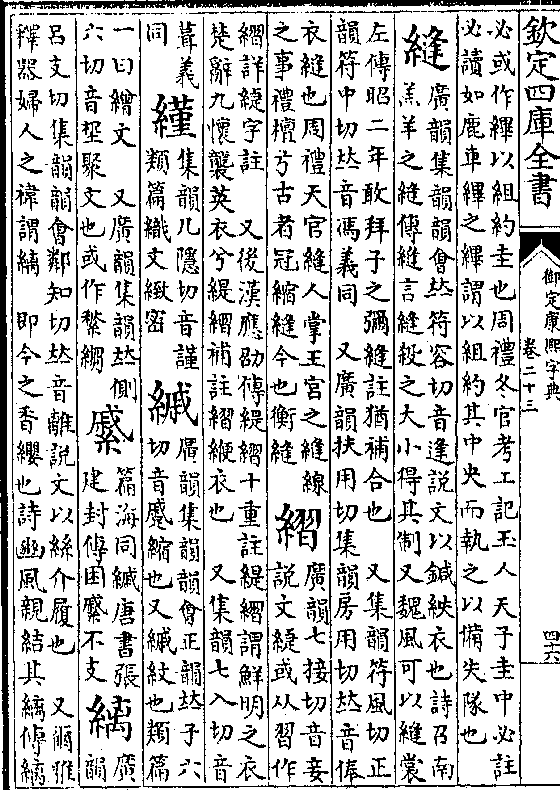 欽定四庫全書
御定康熙字典
卷二十三
四六
必或作縪以組約圭也周禮冬官考工記玉人天子圭中必註
必讀如鹿車縪之縪謂以組約其中央而執之以備失隊也
縫
廣韻集韻韻會𠀤符容切音逢說文以鍼紩衣也詩召南
羔羊之縫傳縫言縫殺之大小得其制又魏風可以縫裳
左傳昭二年敢拜子之彌縫註猶補合也　又集韻符風切正
韻符中切𠀤音馮義同　又廣韻扶用切集韻房用切𠀤音俸
衣縫也周禮天官縫人掌王宮之縫線
之事禮檀弓古者冠縮縫今也衡縫
䌌
廣韻七接切音妾
說文緁或从習作
䌌詳緁字註　又後漢應劭傳緹䌌十重註緹䌌謂鮮明之衣
楚辭九懷襲英衣兮緹䌌補註䌌緶衣也　又集韻七入切音
葺義
同
集韻几隱切音謹
類篇織文緻密
縬
廣韻集韻韻會正韻𠀤子六
切音蹙縮也又縬紋也類篇
一曰繒文　又廣韻集韻𠀤側
六切音 聚文也或作 縐
篇海同縬唐書張
建封傳困 不支
縭
廣
韻
呂支切集韻韻會鄰知切𠀤音離說文以絲介履也　又爾雅
釋器婦人之褘謂縭　即今之香纓也詩豳風親結其縭傳縭